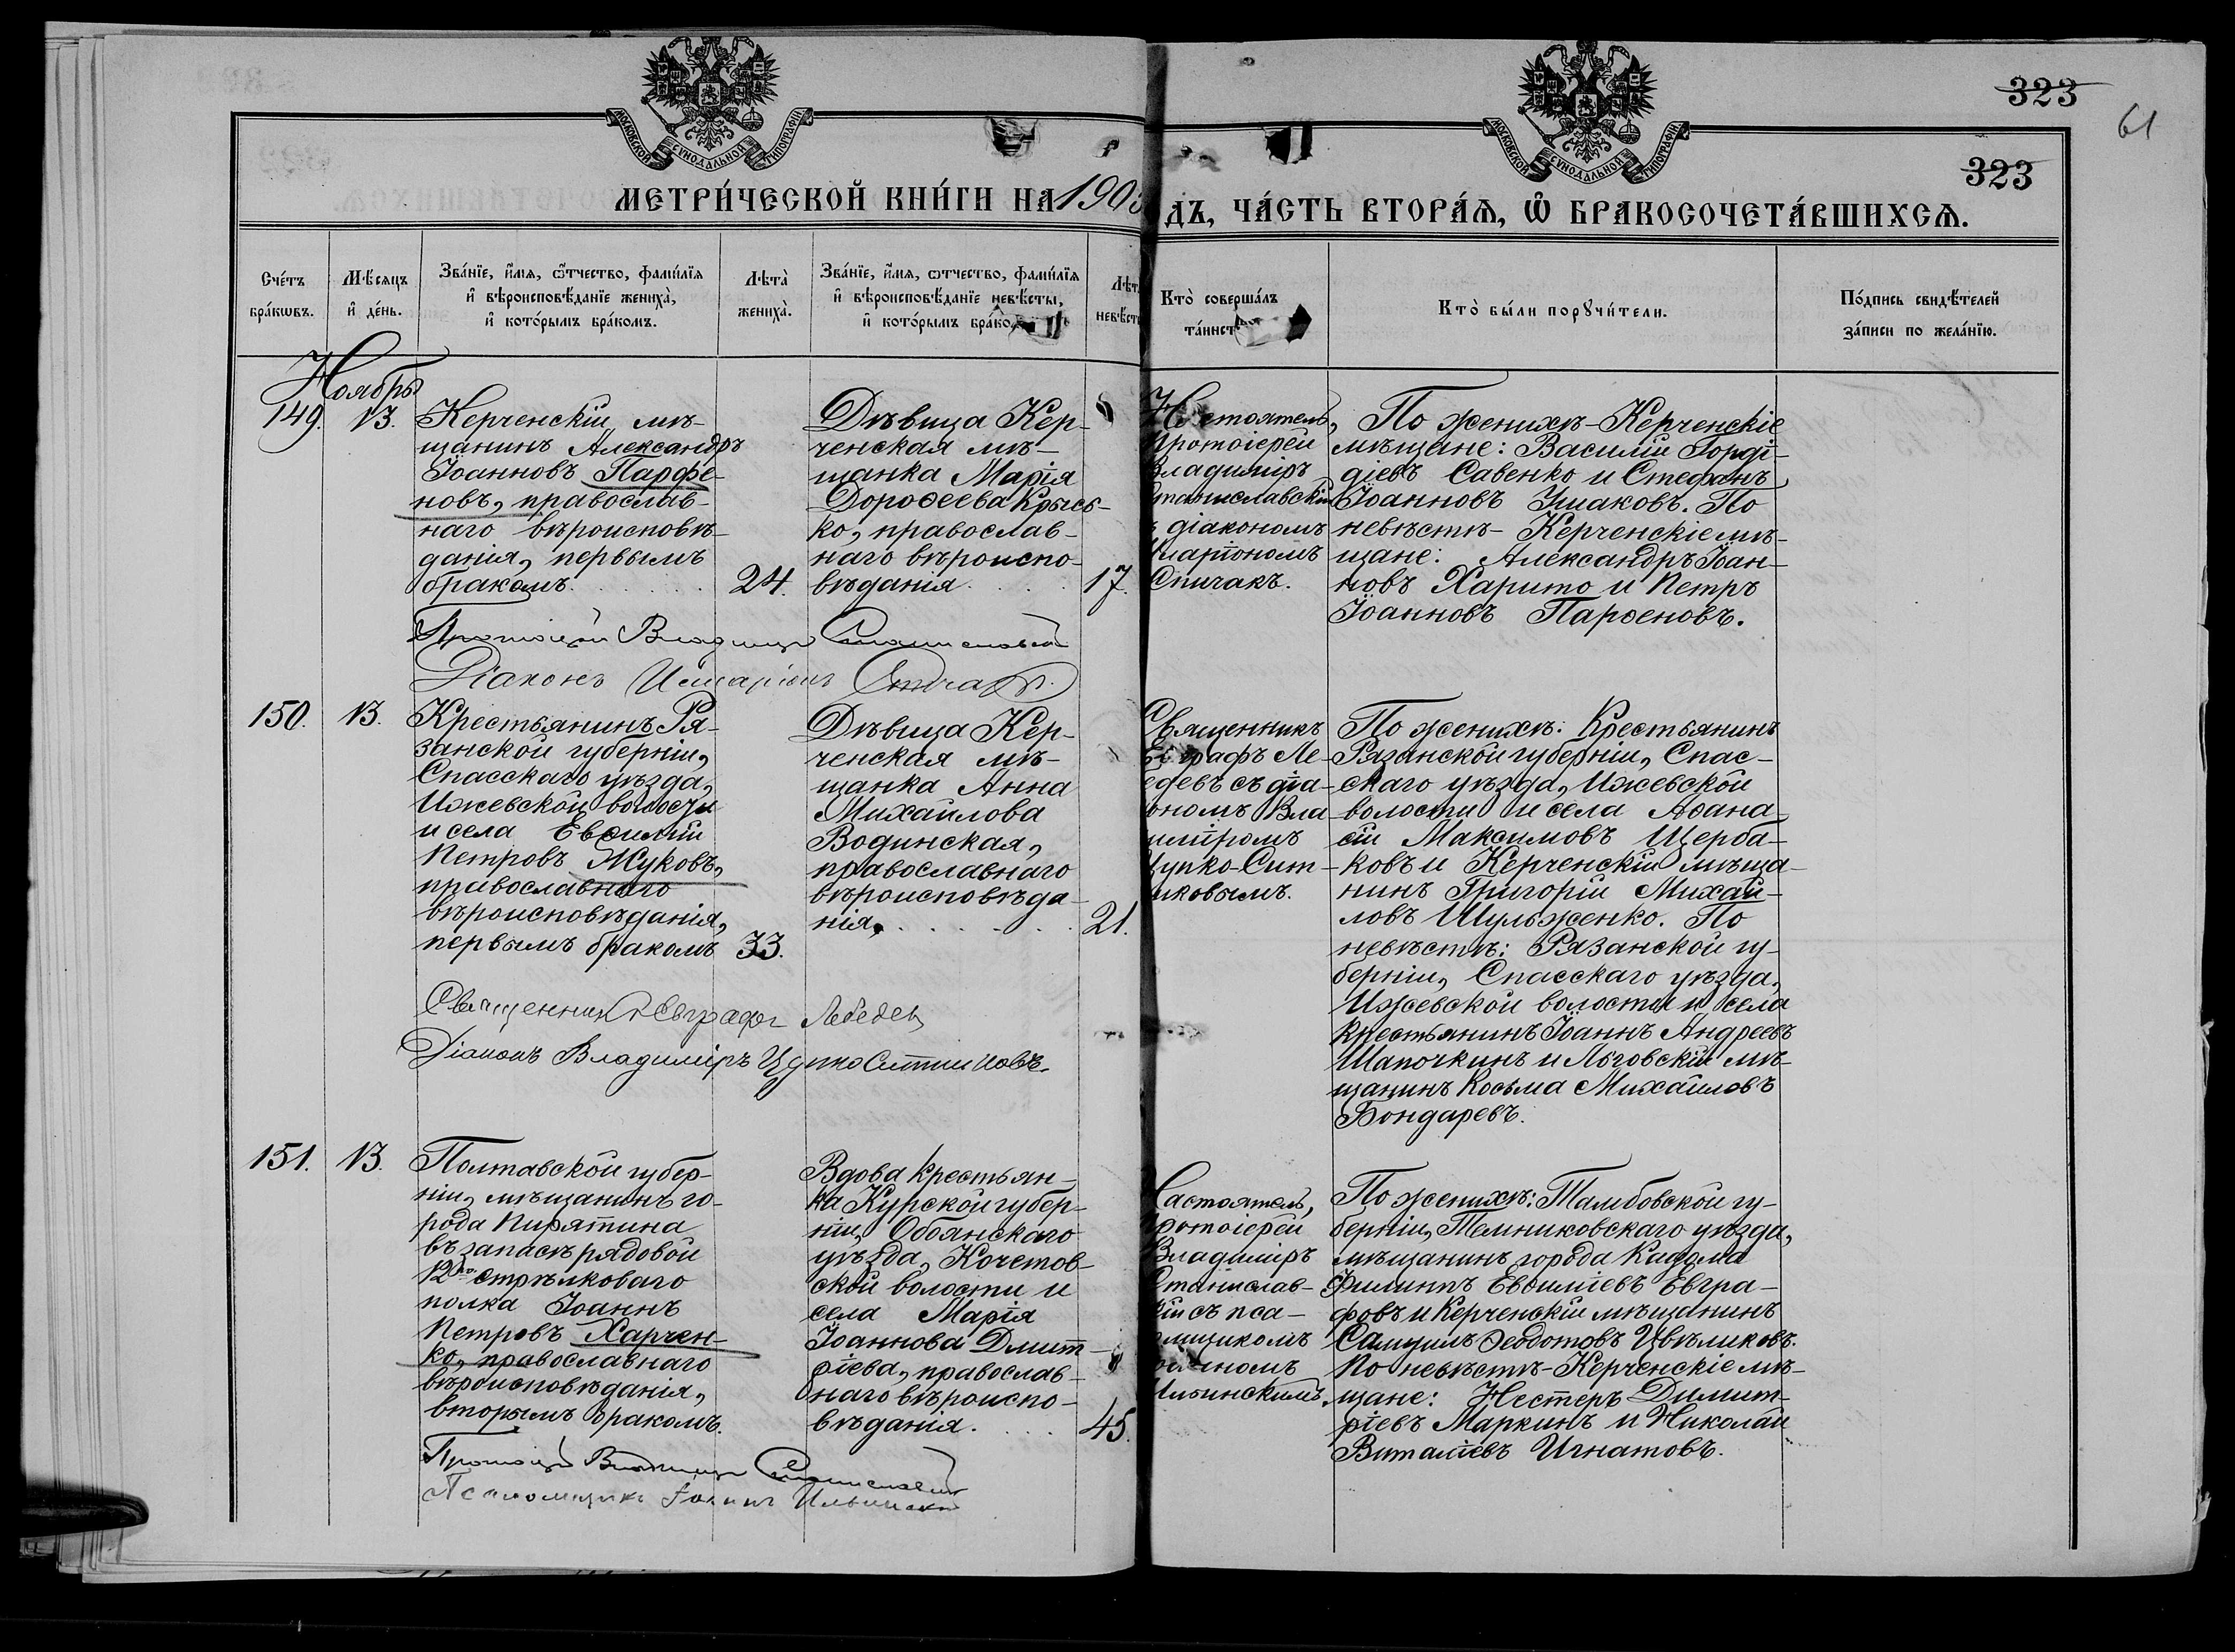 323
61
323
МОСКОВСКОЙ СУНОДАЛЬНОЙ ТИПОГРАФІИ
МОСКОВСКОЙ СУНОДАЛЬНОЙ ТИПОГРАФІИ
МЕТРИ́ЧЕСКОЙ КНИ́ГИ НА 190
ДЪ, ЧА́СТЬ ВТОРА́Я, Ѡ БРАКОСОЧЕТА́ВШИХСѦ.
Сче́тъ
бра́кѡвъ.
Мѣ́сѧцъ
и҆ де́нь.
Зва́нїе, и҆́мѧ, ѻ҆́тчество, фами́лїѧ
и҆ вѣроисповѣ́данїе жениха̀,
и҆ кото́рымъ бра́комъ.
Лѣта̀
жениха̀.
Зва́нїе, и҆́мѧ, ѻ҆́тчество, фами́лїѧ
и҆ вѣроисповѣ́данїе невѣ́сты,
и҆ кото́рымъ бра́ко
Лѣт
невѣст
Кто̀ соверша́лъ
та́инст
Кто̀ бы́ли порꙋчи́тели.
По́дпись свидѣ́телей
за́писи по жела́нїю.
Ноябрь
149.
13.
Керченскій мѣ-
щанинъ Александръ
Іоанновъ Парфе-
новъ, православ-
наго вѣроисповѣ-
данія, первымъ
бракомъ.
24.
Дѣвица Кер-
ченская мѣ-
щанка Марія
Дороѳеева Крысь-
ко, православ-
наго вѣроиспо-
вѣданія.
17.
Настоятель,
Протоіерей
Владиміръ
Станиславскій
съ діакономъ
Спичакъ.
По женихѣ-Керченскіе
мѣщане: Василій Горді-
діевъ Савенко и Стефанъ
Іоанновъ Ушаковъ. По
невѣстѣ-Керченскіе мѣ-
щане: Александръ Іоан-
новъ Харито и Петръ
Іоанновъ Парѳеновъ.
Протоіерей Владиміръ Станиславскій
Діаконъ Иларіонъ Спичакъ.
150.
13.
Крестьянинъ Ря-
занской губерніи,
Спасскаго уѣзда,
Ижевской волости
и села Евѳимій
Петровъ Жуковъ,
православнаго
вѣроисповѣданія,
первымъ бракомъ
33.
Дѣвица Кер-
ченская мѣ-
щанка Анна
Михаилова
Водинская,
православнаго
вѣроисповѣда-
нія.
21.
Священникъ
Евграфъ Ле-
бедевъ съ діа-
кономъ Вла-
диміромъ
Цупко-Сит-
никовымъ.
По женихѣ: Крестьянинъ
Рязанской губерніи, Спас-
скаго уѣзда, Ижевской
волости и села Аѳана-
сій Максимовъ Щерба-
ковъ и Керченскій мѣща-
нинъ Григорій Михай-
ловъ Шульженко. По
невѣстѣ: Рязанской гу-
берніи, Спасскаго уѣзда,
Ижевской волости и села
крестьянинъ Іоаннъ Андреевъ
Шапочкинъ и Льговскій мѣ-
щанинъ Косьма Михаиловъ
Бондаревъ.
Священникъ Евграфъ Лебедевъ
Діаконъ Владиміръ Цупко Ситниковъ.
151.
13.
Полтавской губер-
ніи, мѣщанинъ го-
рода Пирятина
въ запасѣ рядовой
12го стрѣлковаго
полка Іоаннъ
Петровъ Харчен-
ко, православнаго
вѣроисповѣданія,
вторымъ бракомъ.
Вдова крестьян-
ка Курской губер-
ніи, Обоянскаго
уѣзда, Кочетов-
ской волости и
села Марія
Іоаннова Дмит-
ріева, православ-
наго вѣроиспо-
вѣданія.
45.
Настоятель,
Протоіерей
Владиміръ
Станислав-
скій съ пса-
ломщикомъ
Іоанномъ
Ильинскимъ.
По женихѣ: Тамбовской гу-
берніи, Темниковскаго уѣзда,
мѣщанинъ города Кадома
Филиппъ Евѳиміевъ Евгра-
фовъ и Керченскій мѣщанинъ
Самуилъ Ѳеодотовъ Цвѣликовъ.
По невѣстѣ-Керченскіе мѣ-
щане: Нестеръ Димит-
ріевъ Маркинъ и Николай
Виталіевъ Игнатовъ.
Протоіерей Владиміръ Станиславскій
Псаломщикъ Іоаннъ Ильинскій